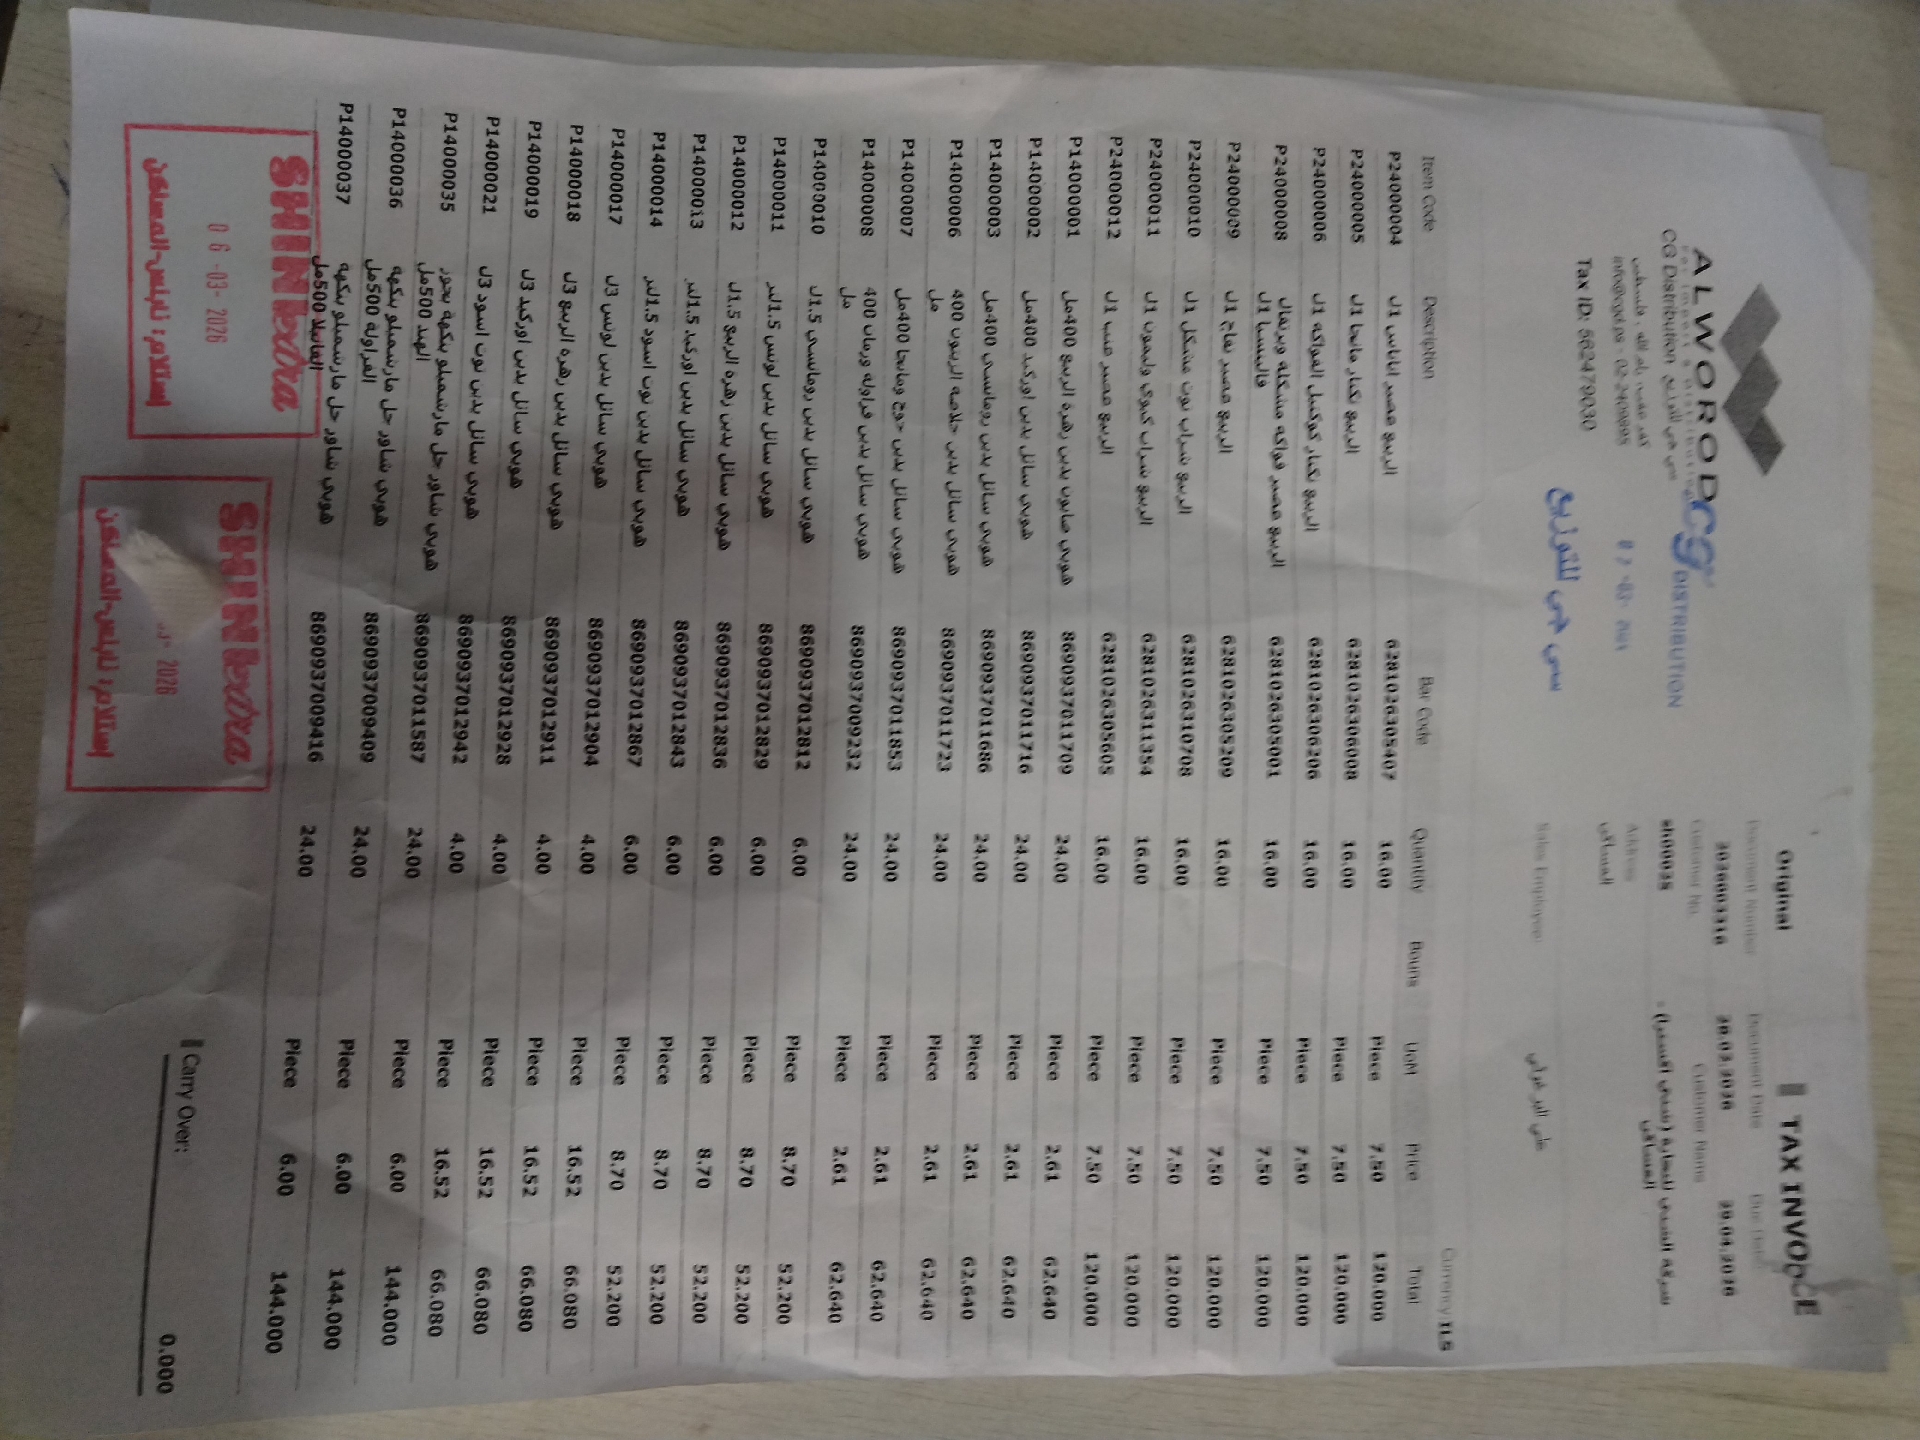 Original
TAX INVOICE
ALWOROD
CG Distribution سي جي للتوزيع
CG DISTRIBUTION
سي جي للتوزيع
Tax ID: 562479030
Document Number Document Date
Customer No. Customer Name
sh00035
Address
المساكن
Sales Employee:
Currency ILS
Item Code Description Bar Code Quantity Bouns UoM Price Total
P24000004 الربيع عصير اناناس 1ل 6281026305407 16.00 Piece 7.50 120.000
P24000005 الربيع نكتار مانجا 1ل 6281026306008 16.00 Piece 7.50 120.000
P24000006 الربيع نكتار كوكتيل الفواكه 1ل 6281026306206 16.00 Piece 7.50 120.000
P24000008 الربيع عصير فواكه مشكلة وبرتقال فالينسيا 1ل 6281026305001 16.00 Piece 7.50 120.000
P24000009 الربيع عصير تفاح 1ل 6281026305209 16.00 Piece 7.50 120.000
P24000010 الربيع شراب توت مشكل 1ل 6281026310708 16.00 Piece 7.50 120.000
P24000011 الربيع شراب كيوي وليمون 1ل 6281026311354 16.00 Piece 7.50 120.000
P24000012 الربيع عصير عنب 1ل 6281026305605 16.00 Piece 7.50 120.000
P14000001 هوبي صابون يدين زهرة الربيع 400مل 8690937011709 24.00 Piece 2.61 62.640
P14000002 هوبي سائل يدين اوركيد 400مل 8690937011716 24.00 Piece 2.61 62.640
P14000003 هوبي سائل يدين روماسي 400مل 8690937011686 24.00 Piece 2.61 62.640
P14000006 هوبي سائل يدين خلاصة الزيتون 400 مل 8690937011723 24.00 Piece 2.61 62.640
P14000007 هوبي سائل يدين خوخ ومانجا 400مل 8690937011853 24.00 Piece 2.61 62.640
P14000008 هوبي سائل يدين فراوله ورمان 400 مل 8690937009232 24.00 Piece 2.61 62.640
P14000010 هوبي سائل يدين روماسي 1.5ل 8690937012812 6.00 Piece 8.70 52.200
P14000011 هوبي سائل يدين لوتس 1.5لتر 8690937012829 6.00 Piece 8.70 52.200
P14000012 هوبي سائل يدين زهرة الربيع 1.5ل 8690937012836 6.00 Piece 8.70 52.200
P14000013 هوبي سائل يدين اوركيد 1.5لتر 8690937012843 6.00 Piece 8.70 52.200
P14000014 هوبي سائل يدين توت اسود 1.5لتر 8690937012867 6.00 Piece 8.70 52.200
P14000017 هوبي سائل يدين لوتس 3ل 8690937012904 4.00 Piece 16.52 66.080
P14000018 هوبي سائل يدين زهرة الربيع 3ل 8690937012911 4.00 Piece 16.52 66.080
P14000019 هوبي سائل يدين اوركيد 3ل 8690937012928 4.00 Piece 16.52 66.080
P14000021 هوبي سائل يدين توت اسود 3ل 8690937012942 4.00 Piece 16.52 66.080
P14000035 هوبي شاور جل مارشميلو بنكهة بجوز الهند 500مل 8690937011587 24.00 Piece 6.00 144.000
P14000036 هوبي شاور جل مارشميلو بنكهة الفراولة 500مل 8690937009409 24.00 Piece 6.00 144.000
P14000037 هوبي شاور جل مارشميلو بنكهة الفانيلا 500مل 8690937009416 24.00 Piece 6.00 144.000
Carry Over: 0.000
SHINI extra
06-03-2026
إستلام: نابلس-المساكن
SHINI extra
2026
إستلام: نابلس-المساكن